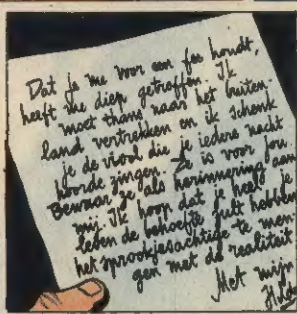 Dat je me voor een fee houdt,
heeft me diep getroffen. Ik
moet thans naar het buiten-
land vertrekken en ik schenk
je de viool die je iedere nacht
hoorde zingen. Ze is voor jou.
Bewaar ze als herinnering aan
mij. Ik hoop dat je heel je
leven de behoefte zult hebben
het sprookjesachtige te men-
gen met de realiteit
Met mijn